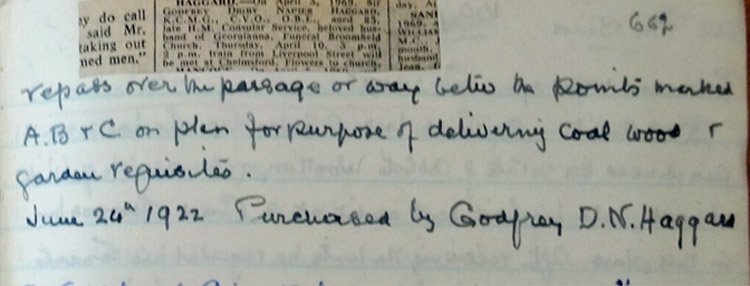 ey do call
said Mr.
taking out
ned men."
HAGGARD.—On 3, 1969, Sir
GODFREY DIGBY NAPIER HAGGARD,
K.C.M.G., C.V.O., O.B.E., aged 85,
late H.M. Consular Service, beloved hus-
band of Georgianna. Funeral Broomfield
Church, Thursday, April 10, 3 p.m.
2 p.m. train from Liverpool Street
be met at Chelmsford. Flowers to church.
day, A
1969,
M.C.
husband
662
repass over the passage or way betw the points marked
A. B & C on plan for purpose of delivering coal wood &
garden requisites.
June 24th 1922 Purchased by Godfrey D. N. Haggard